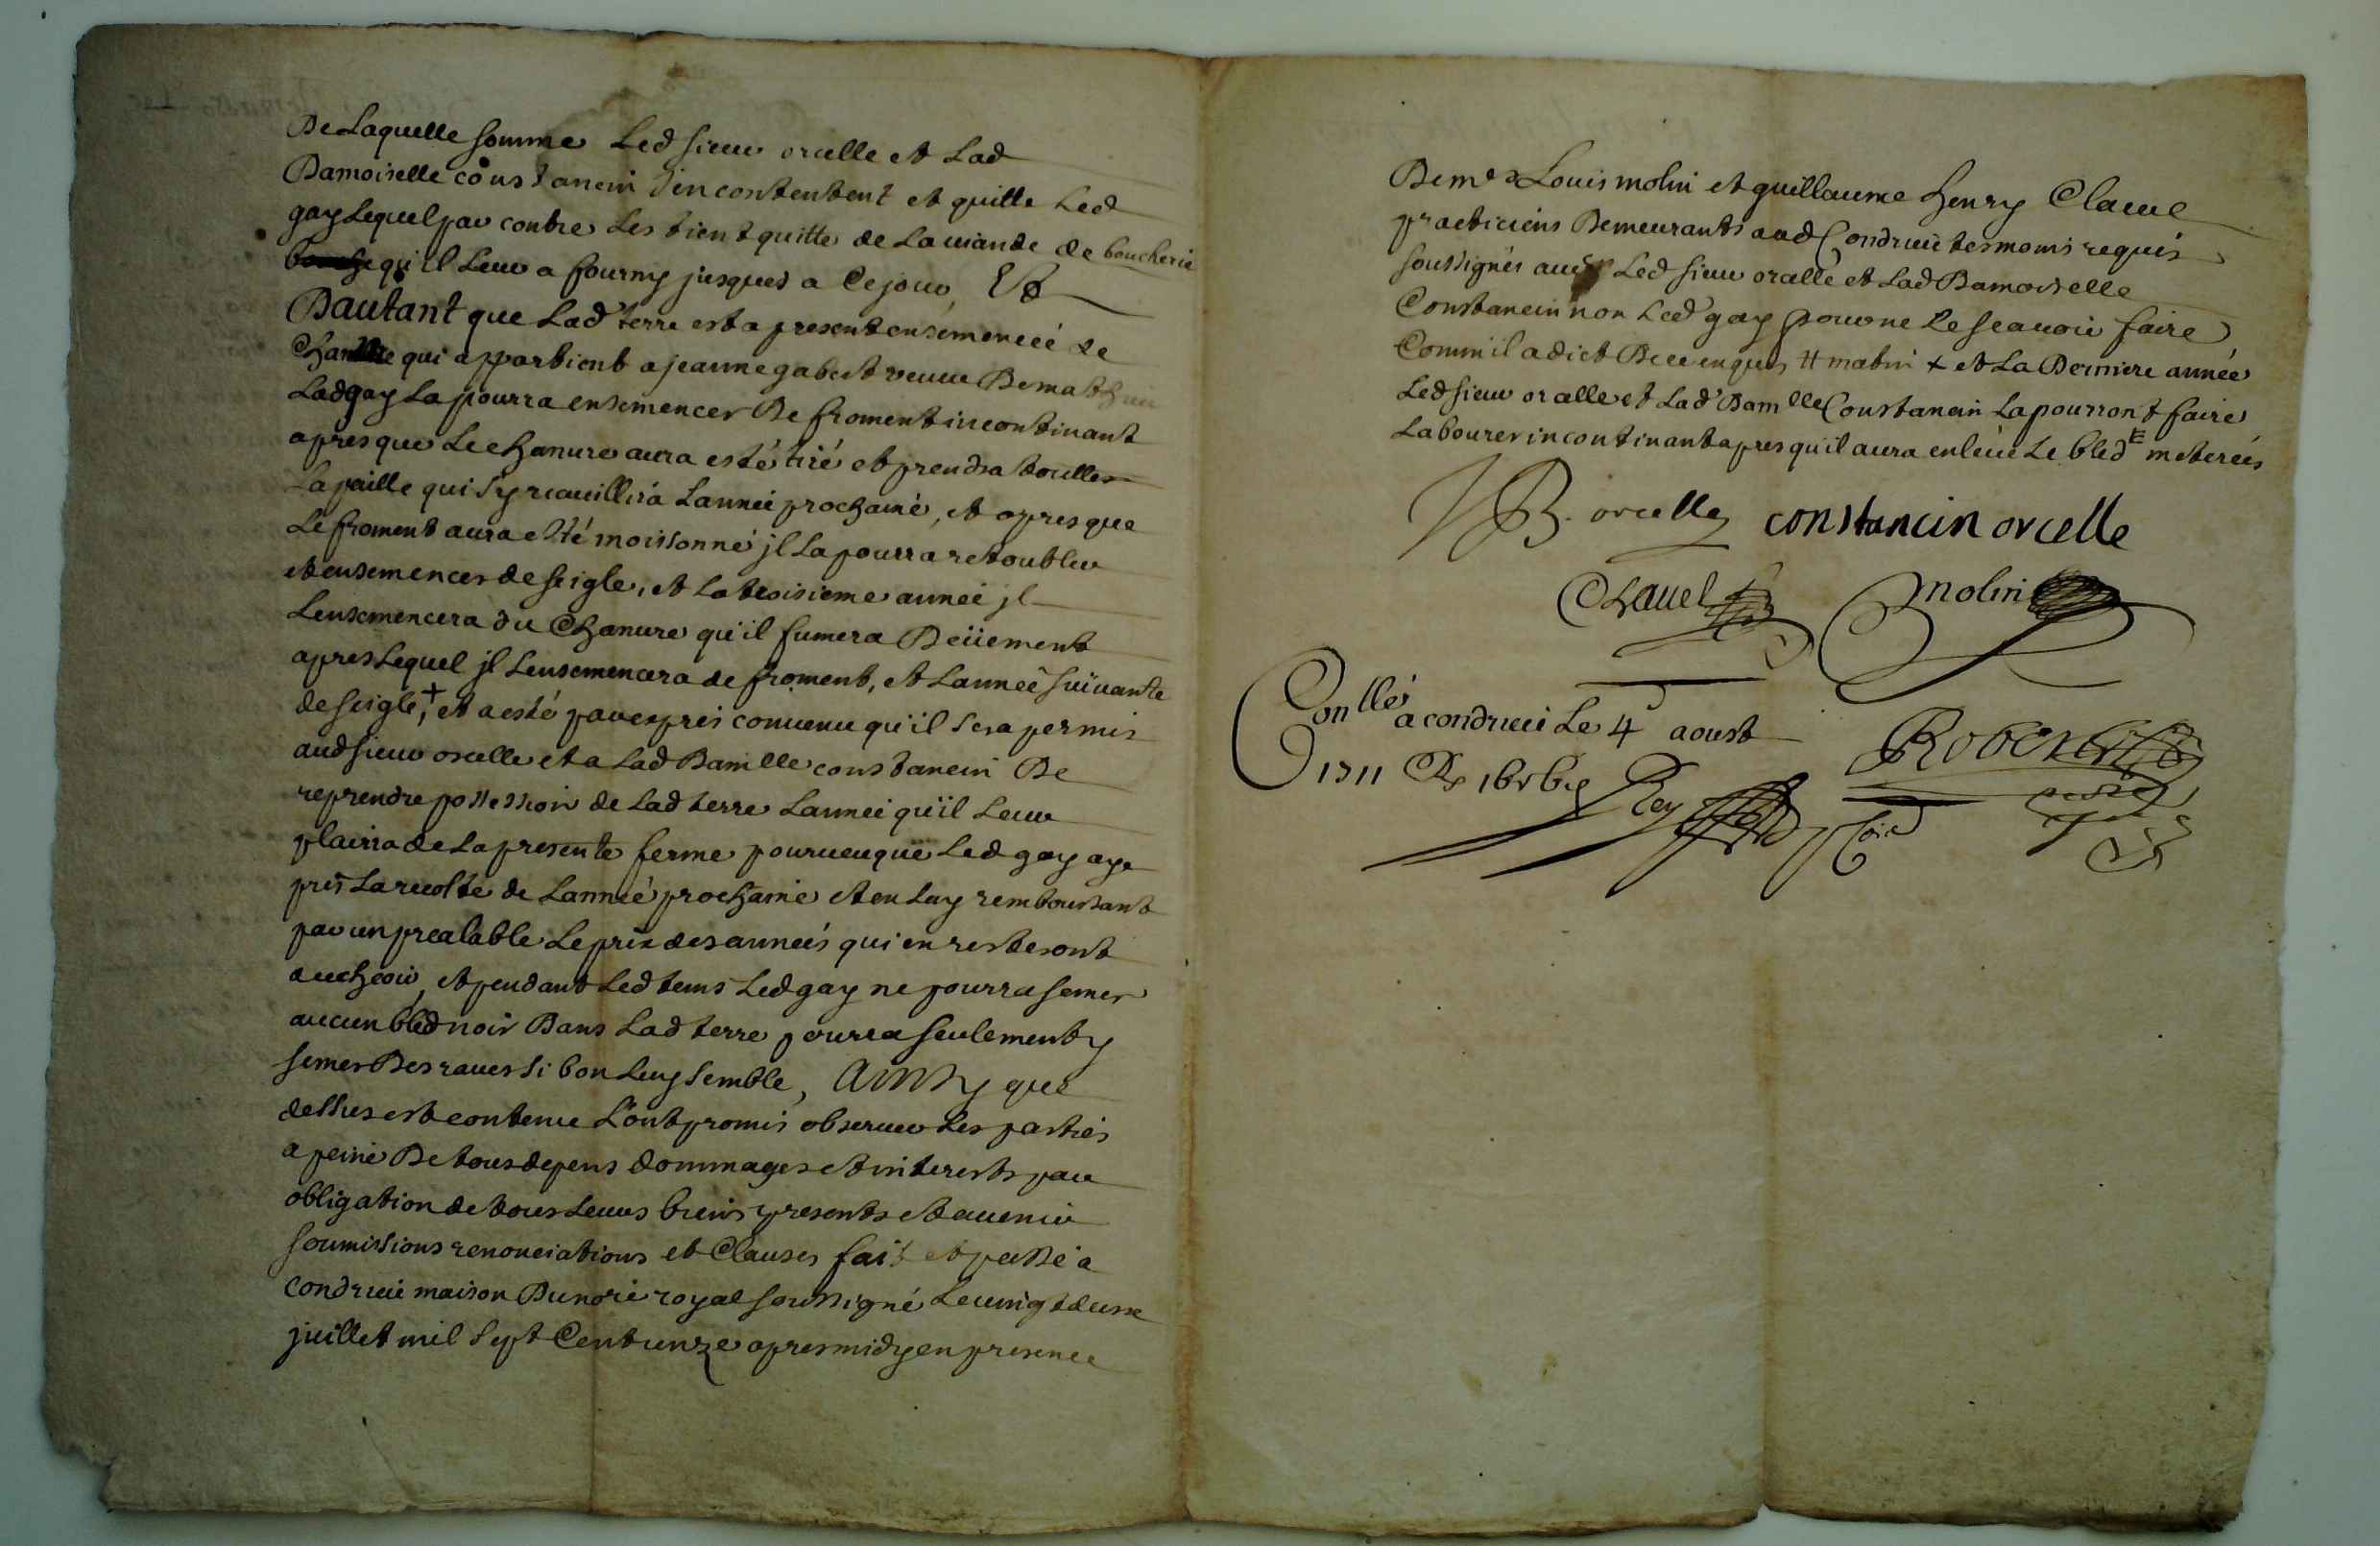 De Laquelle somme Led sieur orcelle et Lad
Damoiselle constancin s'en contentent et quitte Led
gay Lequel par contre Les tient quitte de La viande de boucherie
qu'il Leur a fourny jusques a Ce jour, Et
Dautant que Lad terre est a present ensemencéé de
Chanvre qui appartient a jeanne gabert veuve De mathieu
Lad gay La pourra ensemencer De froment incontinant
apres que Le chanvre aura esté tiré et prendra toutte
La paille qui s'y recueillira L'année prochaine, et apres que
Le froment aura esté moissonné jl La pourra retoubler
et ensemencer de seigle, et La troisieme année jl
L'ensemencera du Chanvre qu'il fumera Deüement
apres Lequel jl L'ensemencera de froment, et L'année suivante
de seigle,+ et a esté par expres convenu qu'il sera permis
aud sieur orcelle et a Lad Damlle constancin De
reprendre possession de Lad terre L'année qu'il Leur
plairra de La presente ferme pourveu que Led gay aye
pris La recolte de L'année prochaine et en Luy remboursant
par un prealable Le prix des années qui en resteront
a escheoir, et pendant Led tems Led gay ne pourra semer
aucun bléd noir Dans Lad terre pourra seulement y
semer Des raves si bon Luy semble, Ainsy que
dessus est contenu L'ont promis observer Les parties
a peine De tous depens dommages et interests par
obligation de tous Leurs biens presents et avenir
soumissions renonciations et Clauses fait et passé a
condrieu maison Du nore royal soussigné Le vingt deux
juillet mil sept Cent unze apres midy en presence
De mes Louis molin et guillaume henry Clavel
practiciens Demeurants aud Condrieu tesmoins requis
soussignés avec Led sieur orcelle et Lad Damoiselle
Constancin non Led gay pour ne Le scavoir faire
Comm'il a dict De ce enquis # matin + et La Derniere année
Led sieur orcelle et Lad Damlle Constancin La pourront faire
Labourer incontinant apres qu'il aura enlevé Le bled
B. orcelle constancin orcelle
Chavel molin
Conllé a condrieu Le 4 aoust Robert
1711
Rey